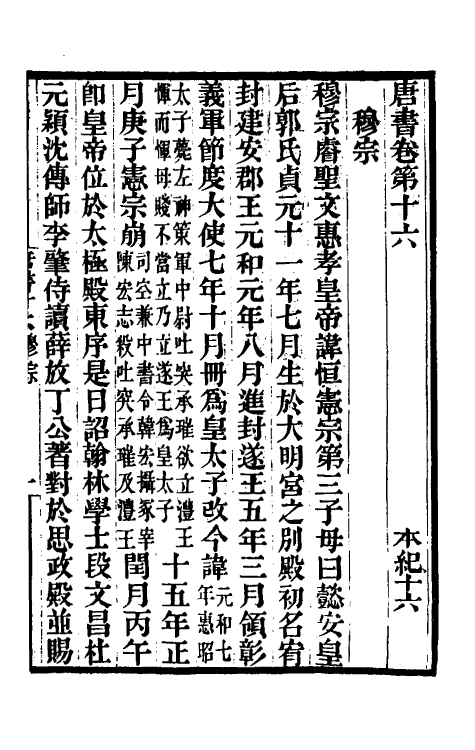 唐書卷第十六 本紀十六
穆宗
穆宗睿聖文惠孝皇帝諱恒憲宗第三子母曰懿安皇
后郭氏貞元十一年七月生於大明宮之別殿初名宥
封建安郡王元和元年八月進封遂王五年三月領彰
義軍節度大使七年十月冊為皇太子改今諱元和七年惠昭
太子薨左神策軍中尉吐突承璀欲立澧王惲而惲母賤不當立乃立遂王為皇太子十五年正
月庚子憲宗崩司空兼中書令韓宏攝冢宰陳宏志殺吐突承璀及澧王閏月丙午
卽皇帝位於太極殿東序是日詔翰林學士段文昌杜
元穎沈傳師李肇侍讀薛放丁公著對於思政殿並賜